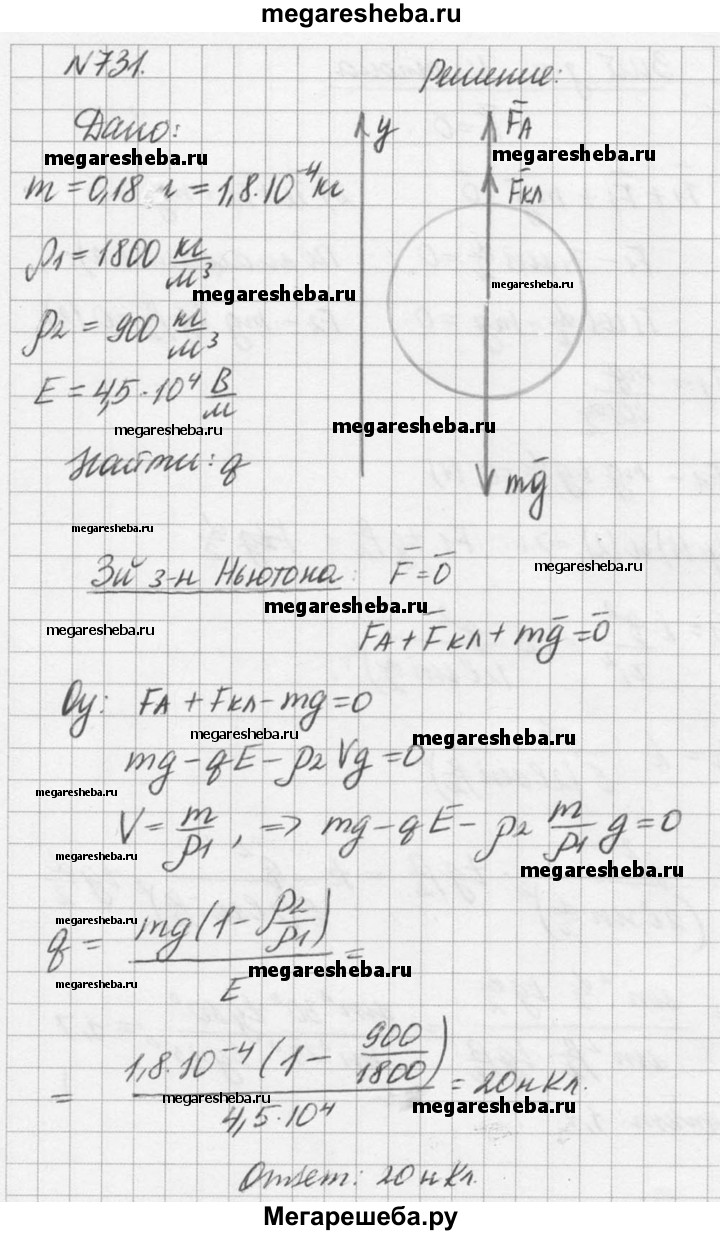 megaresheba.ru
№731.
Решение:
Дано:
y
F̄А
megaresheba.ru
megaresheba.ru
m = 0,18 г = 1,8·10⁻⁴ кг
F̄кл
ρ1 = 1800 кг/м³
megaresheba.ru
megaresheba.ru
ρ2 = 900 кг/м³
E = 4,5·10⁴ В/м
megaresheba.ru
megaresheba.ru
Найти: q
mḡ
megaresheba.ru
3й з-н Ньютона: F̄ = 0̄
megaresheba.ru
megaresheba.ru
megaresheba.ru
F̄А + F̄кл + mḡ = 0̄
Oy: FА + Fкл - mg = 0
megaresheba.ru
megaresheba.ru
mg - qE - ρ2Vg = 0
megaresheba.ru
V = m/ρ1, => mg - qE - ρ2 m/ρ1 g = 0
megaresheba.ru
megaresheba.ru
megaresheba.ru
q = mg(1 - ρ2/ρ1)/E =
megaresheba.ru
megaresheba.ru
= 1,8·10⁻⁴(1 - 900/1800)/4,5·10⁴ = 20нКл.
megaresheba.ru
megaresheba.ru
Ответ: 20нКл.
Мегарешеба.ру